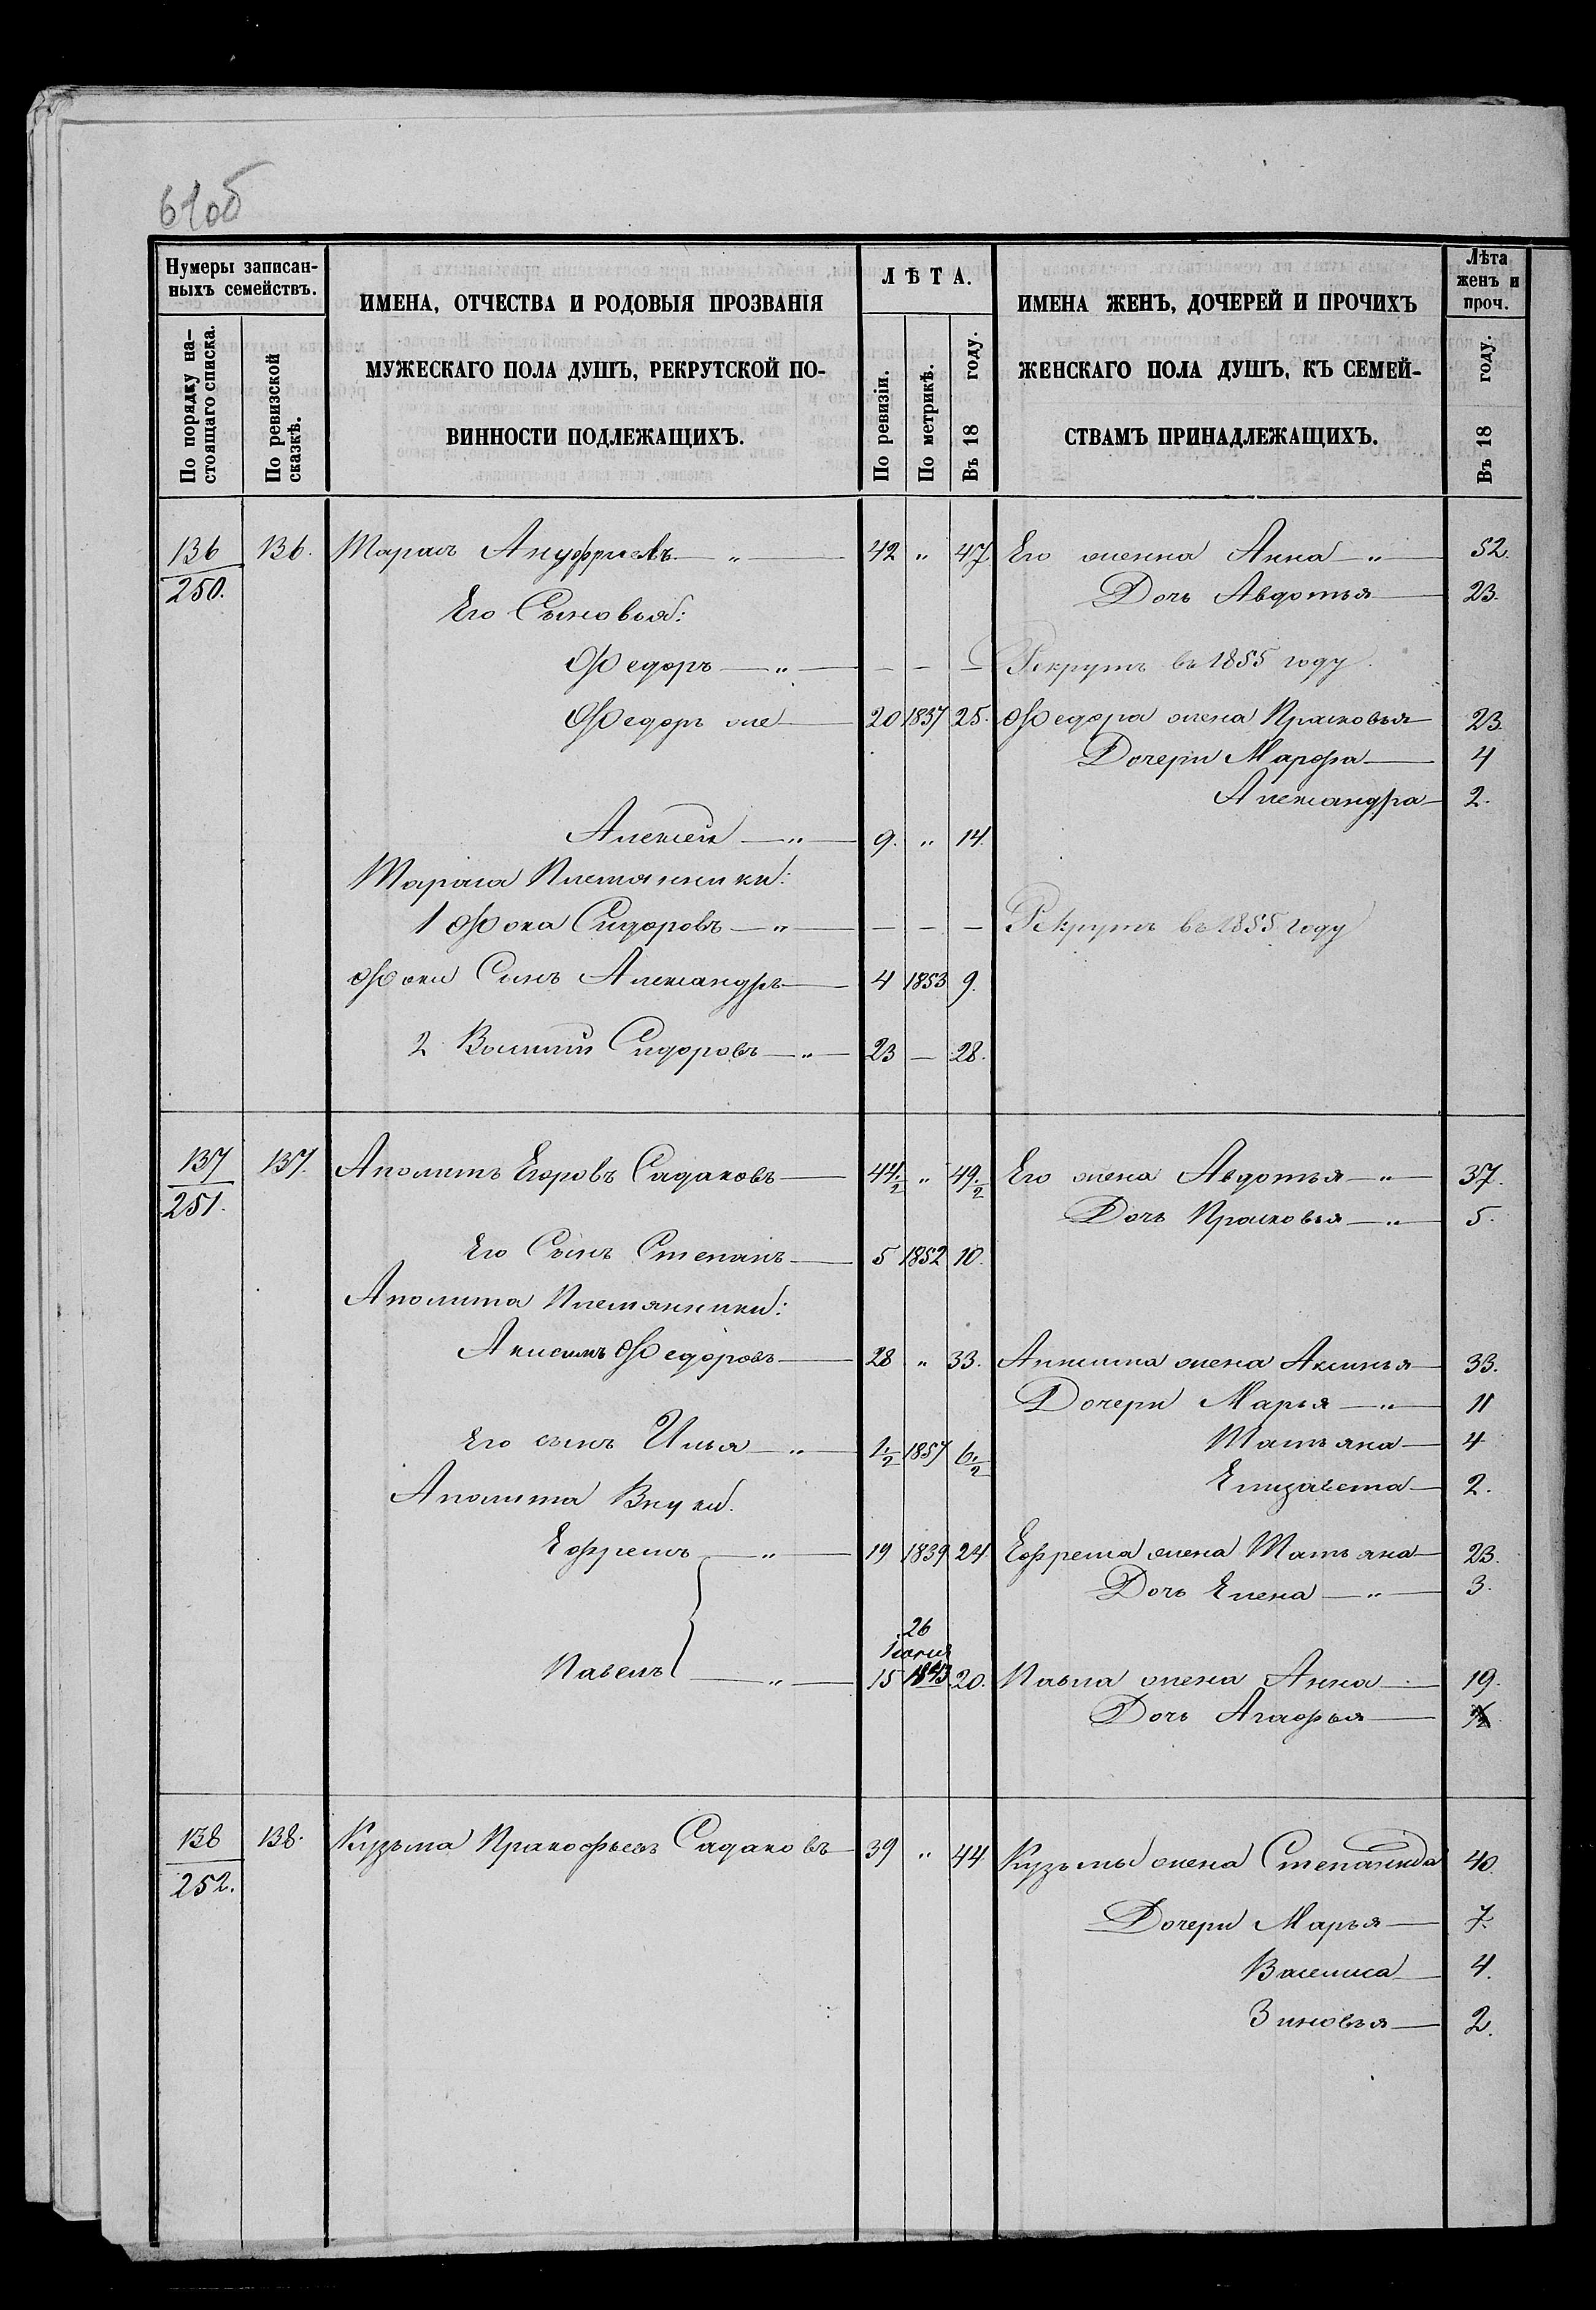 61об
Нумеры записан-
ныхъ семействъ.
По порядку на-
стоящаго списка.
По ревизской
сказкѣ.
ИМЕНА, ОТЧЕСТВА И РОДОВЫЯ ПРОЗВАНІЯ
МУЖЕСКАГО ПОЛА ДУШЪ, РЕКРУТСКОЙ ПО-
ВИННОСТИ ПОДЛЕЖАЩИХЪ.
ЛѢТА.
По ревизіи.
По метрикѣ.
Въ 18 году.
ИМЕНА ЖЕНЪ, ДОЧЕРЕЙ И ПРОЧИХЪ
ЖЕНСКАГО ПОЛА ДУШЪ, КЪ СЕМЕЙ-
СТВАМЪ ПРИНАДЛЕЖАЩИХЪ.
Лѣта
женъ и
проч.
Въ 18 году.
136 136. Тарасъ Ануфріевъ — „ — 42 „ 47. Его женна Анна — „ — 52.
250. Дочь Авдотья — 23.
Его Сыновья:
Федоръ — „ — — — — Рекрутъ въ 1855 году.
Федоръ же — 20 1837 25. Федора жена Прасковья — 23.
Дочери Марфа — 4
Александра — 2.
Алексей — „ — 9. „ 14.
Тараса Племянники:
1 Фока Сидоровъ — „ — — — — Рекрутъ въ 1855 году
Фоки Сынъ Александръ — 4 1853 9.
2 Василій Сидоровъ — „ — 23 — 28.
137 137. Аполитъ Егоровъ Садаковъ — 44 1/2 „ 49 1/2 Его жена Авдотья — „ — 37.
251. Дочь Прасковья — „ — 5.
Его Сынъ Степанъ — 5 1852 10.
Аполита Племянники:
Анисимъ Федоровъ — 28 „ 33. Анисима жена Аксинья — 33.
Дочери Марья — „ — 11
Его сынъ Илья — „ — 1 1/2 1857 6 1/2 Татьяна — 4
Елизавета — 2.
Аполита Внуки.
Ефремъ — „ — 19 1839 24. Ефрема жена Татьяна — 23.
Дочь Елена — „ — 3.
26
Іюня
Павелъ — „ — 15 1843 20. Павла жена Анна — 19.
Дочь Агафья —
138 138. Кузьма Пракофьевъ Садаковъ — 39 „ 44 Кузьмы жена Степанида 40.
252. Дочери Марья — 7.
Василиса — 4.
Зиновья — 2.